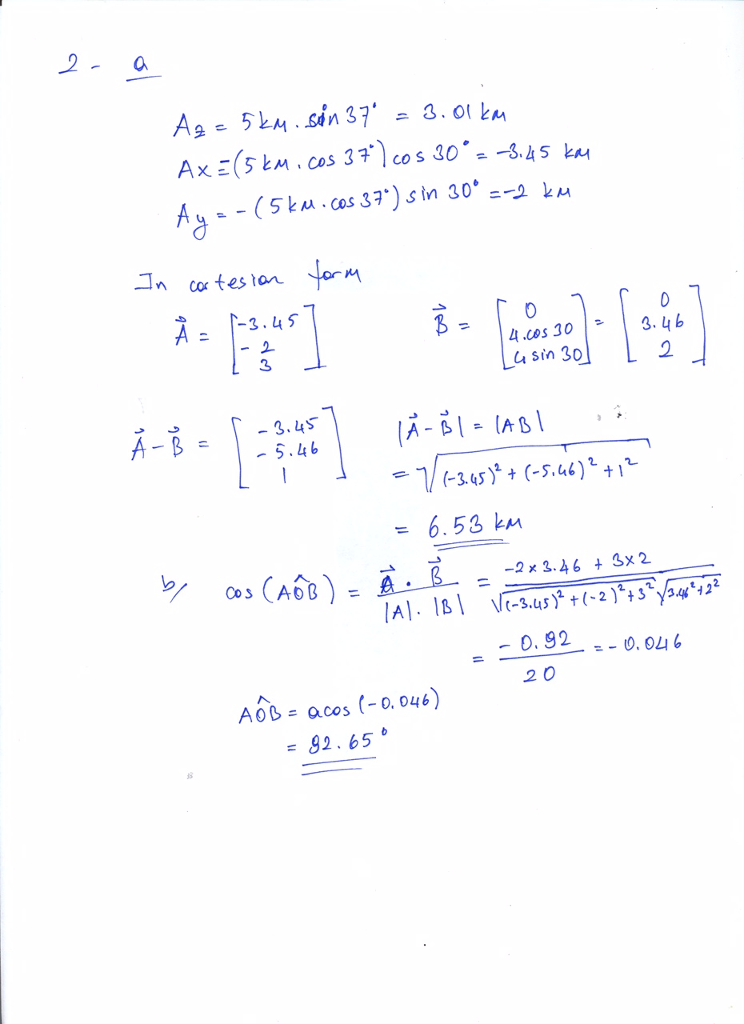 2 - a
Az = 5 km . sin 37° = 3.01 km
Ax = -(5 km . cos 37°) cos 30° = -3.45 km
Ay = - (5 km . cos 37°) sin 30° = -2 km
In cartesian form
A⃗ = [-3.45 -2 3] B⃗ = [0 4.cos 30 4 sin 30] = [0 3.46 2]
A⃗ - B⃗ = [-3.45 -5.46 1] |A⃗ - B⃗| = |AB|
= √((-3.45)² + (-5.46)² + 1²)
= 6.53 km
b/ cos (AÔB) = A⃗ . B⃗ / |A| . |B| = -2 x 3.46 + 3x2 / √((-3.45)² + (-2)² + 3²) √(3.46² + 2²)
= -0.92 / 20 = -0.046
AÔB = acos (-0.046)
= 92.65°